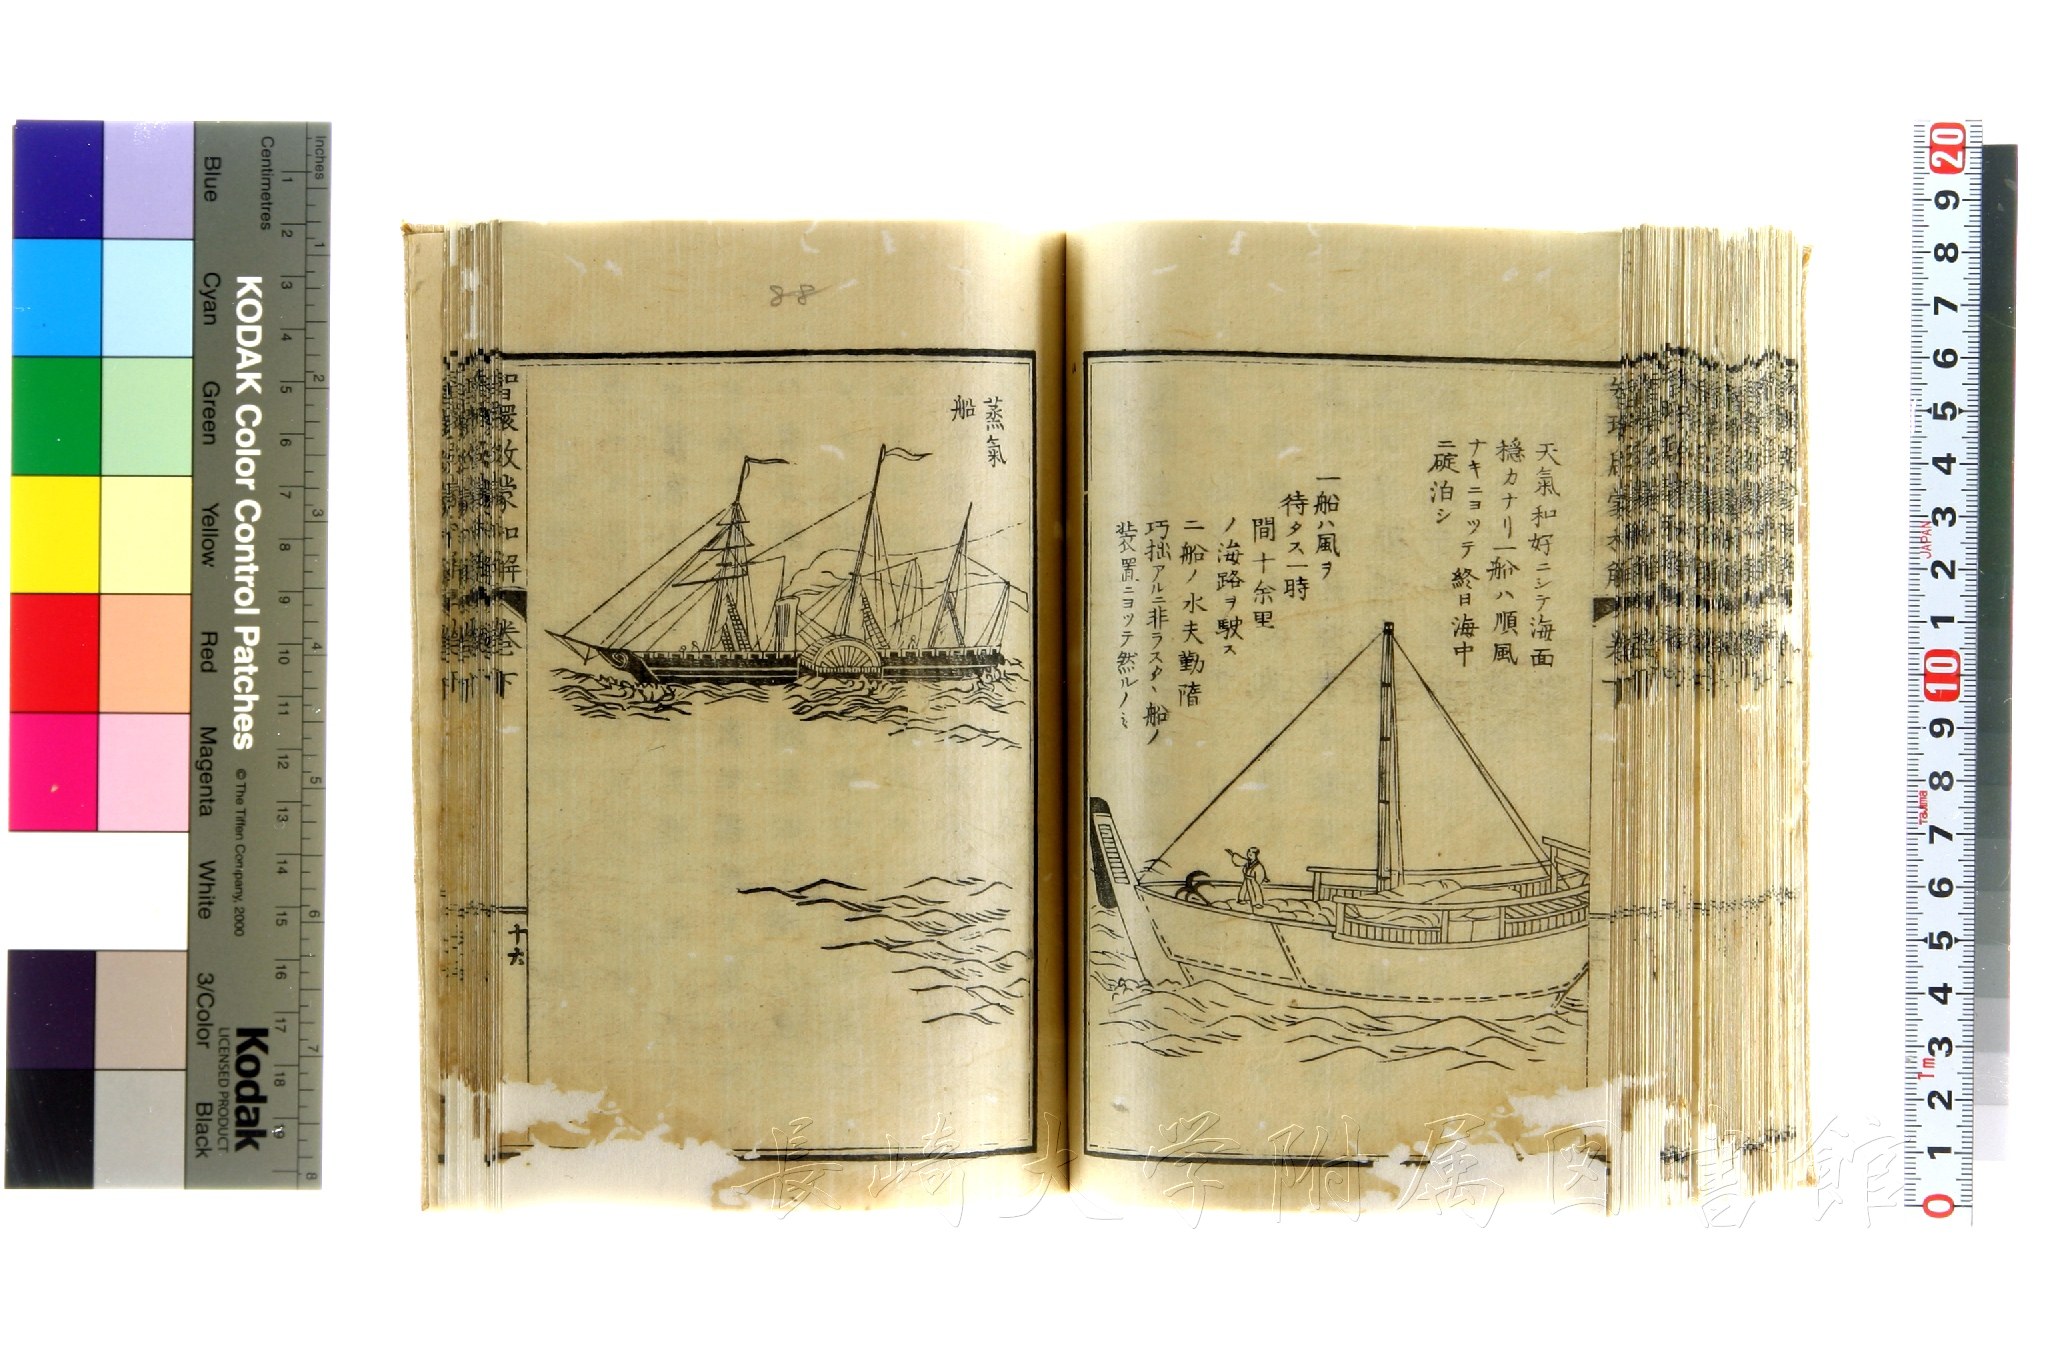 天氣和好ニシテ海面
穏カナリ一船ハ順風
ナキニヨッテ終日海中
ニ碇泊シ
一船ハ風ヲ
待タス一時
間十余里
ノ海路ヲ駛ス
二船ノ水夫勤惰
巧拙アルニ非ラスタヽ船ノ
装置ニヨッテ然ルノミ
蒸氣
船
88
智環啟蒙和解
巻下
十六
長崎大学附属図書館
KODAK Color Control Patches
© The Tiffen Company, 2000
Kodak
LICENSED PRODUCT
Inches
1 2 3 4 5 6 7 8
Centimetres
1 2 3 4 5 6 7 8 9 10 11 12 13 14 15 16 17 18 19
Blue
Cyan
Green
Yellow
Red
Magenta
White
3/Color
Black
20 9 8 7 6 5 4 3 2 1 10 9 8 7 6 5 4 3 2 1 0
JAPAN
Tajima
Tm